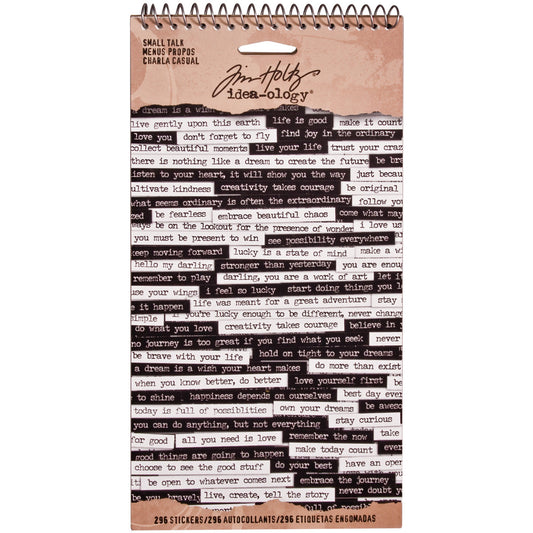 SMALL TALK
MENUS PROPOS
CHARLA CASUAL
Tim Holtz
idea-ology®
a dream is a wish your heart makes
live gently upon this earth life is good make it count
love you don't forget to fly find joy in the ordinary
collect beautiful moments live your life trust your crazy
there is nothing like a dream to create the future be br
listen to your heart, it will show you the way just becau
ultivate kindness creativity takes courage be original
what seems ordinary is often the extraordinary follow you
zed be fearless embrace beautiful chaos come what may
ways be on the lookout for the presence of wonder i love us
you must be present to win see possibility everywhere
keep moving forward lucky is a state of mind make a wi
hello my darling stronger than yesterday you are enou
remember to play darling, you are a work of art let it
use your wings i feel so lucky start doing things you l
e it happen life was meant for a great adventure stay
simple if you're lucky enough to be different, never change
do what you love creativity takes courage believe in y
no journey is too great if you find what you seek never
be brave with your life hold on tight to your dreams
a dream is a wish your heart makes do more than exist
when you know better, do better love yourself first
to shine happiness depends on ourselves best day ever
today is full of possiblities own your dreams be aweso
you can do anything, but not everything stay curious
for good all you need is love remember the now take
good things are going to happen make today count ever
choose to see the good stuff do your best have an open
it be open to whatever comes next embrace the journey
be you, bravely live, create, tell the story never doubt yo
full of possi
296 STICKERS/296 AUTOCOLLANTS/296 ETIQUETAS ENGOMADAS